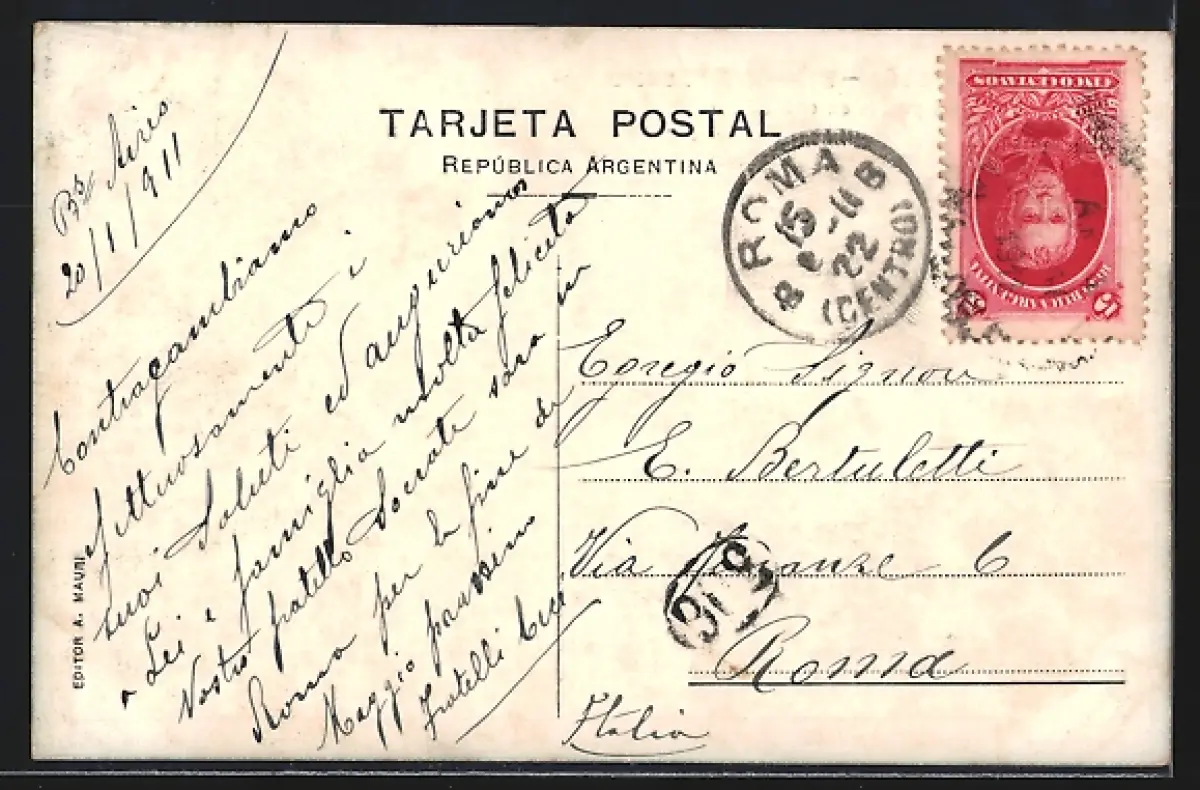 TARJETA POSTAL
REPÚBLICA ARGENTINA
Bs Aires
20/1/911
Contracambiamo
affettuosamente i
suoi saluti ed auguriamo
a Lei e famiglia molta felicità
Vostro fratello Socrate sara in
Roma per la fine di
Maggio prossimo
Fratelli
Egregio Signor
E. Bertuletti
Via 6
Roma
Italia
ROMA 8
15
2-11
22
(CENTRO)
REPUBLICA ARGENTINA
5 5
CINCO CENTAVOS
EDITOR A. MAURI